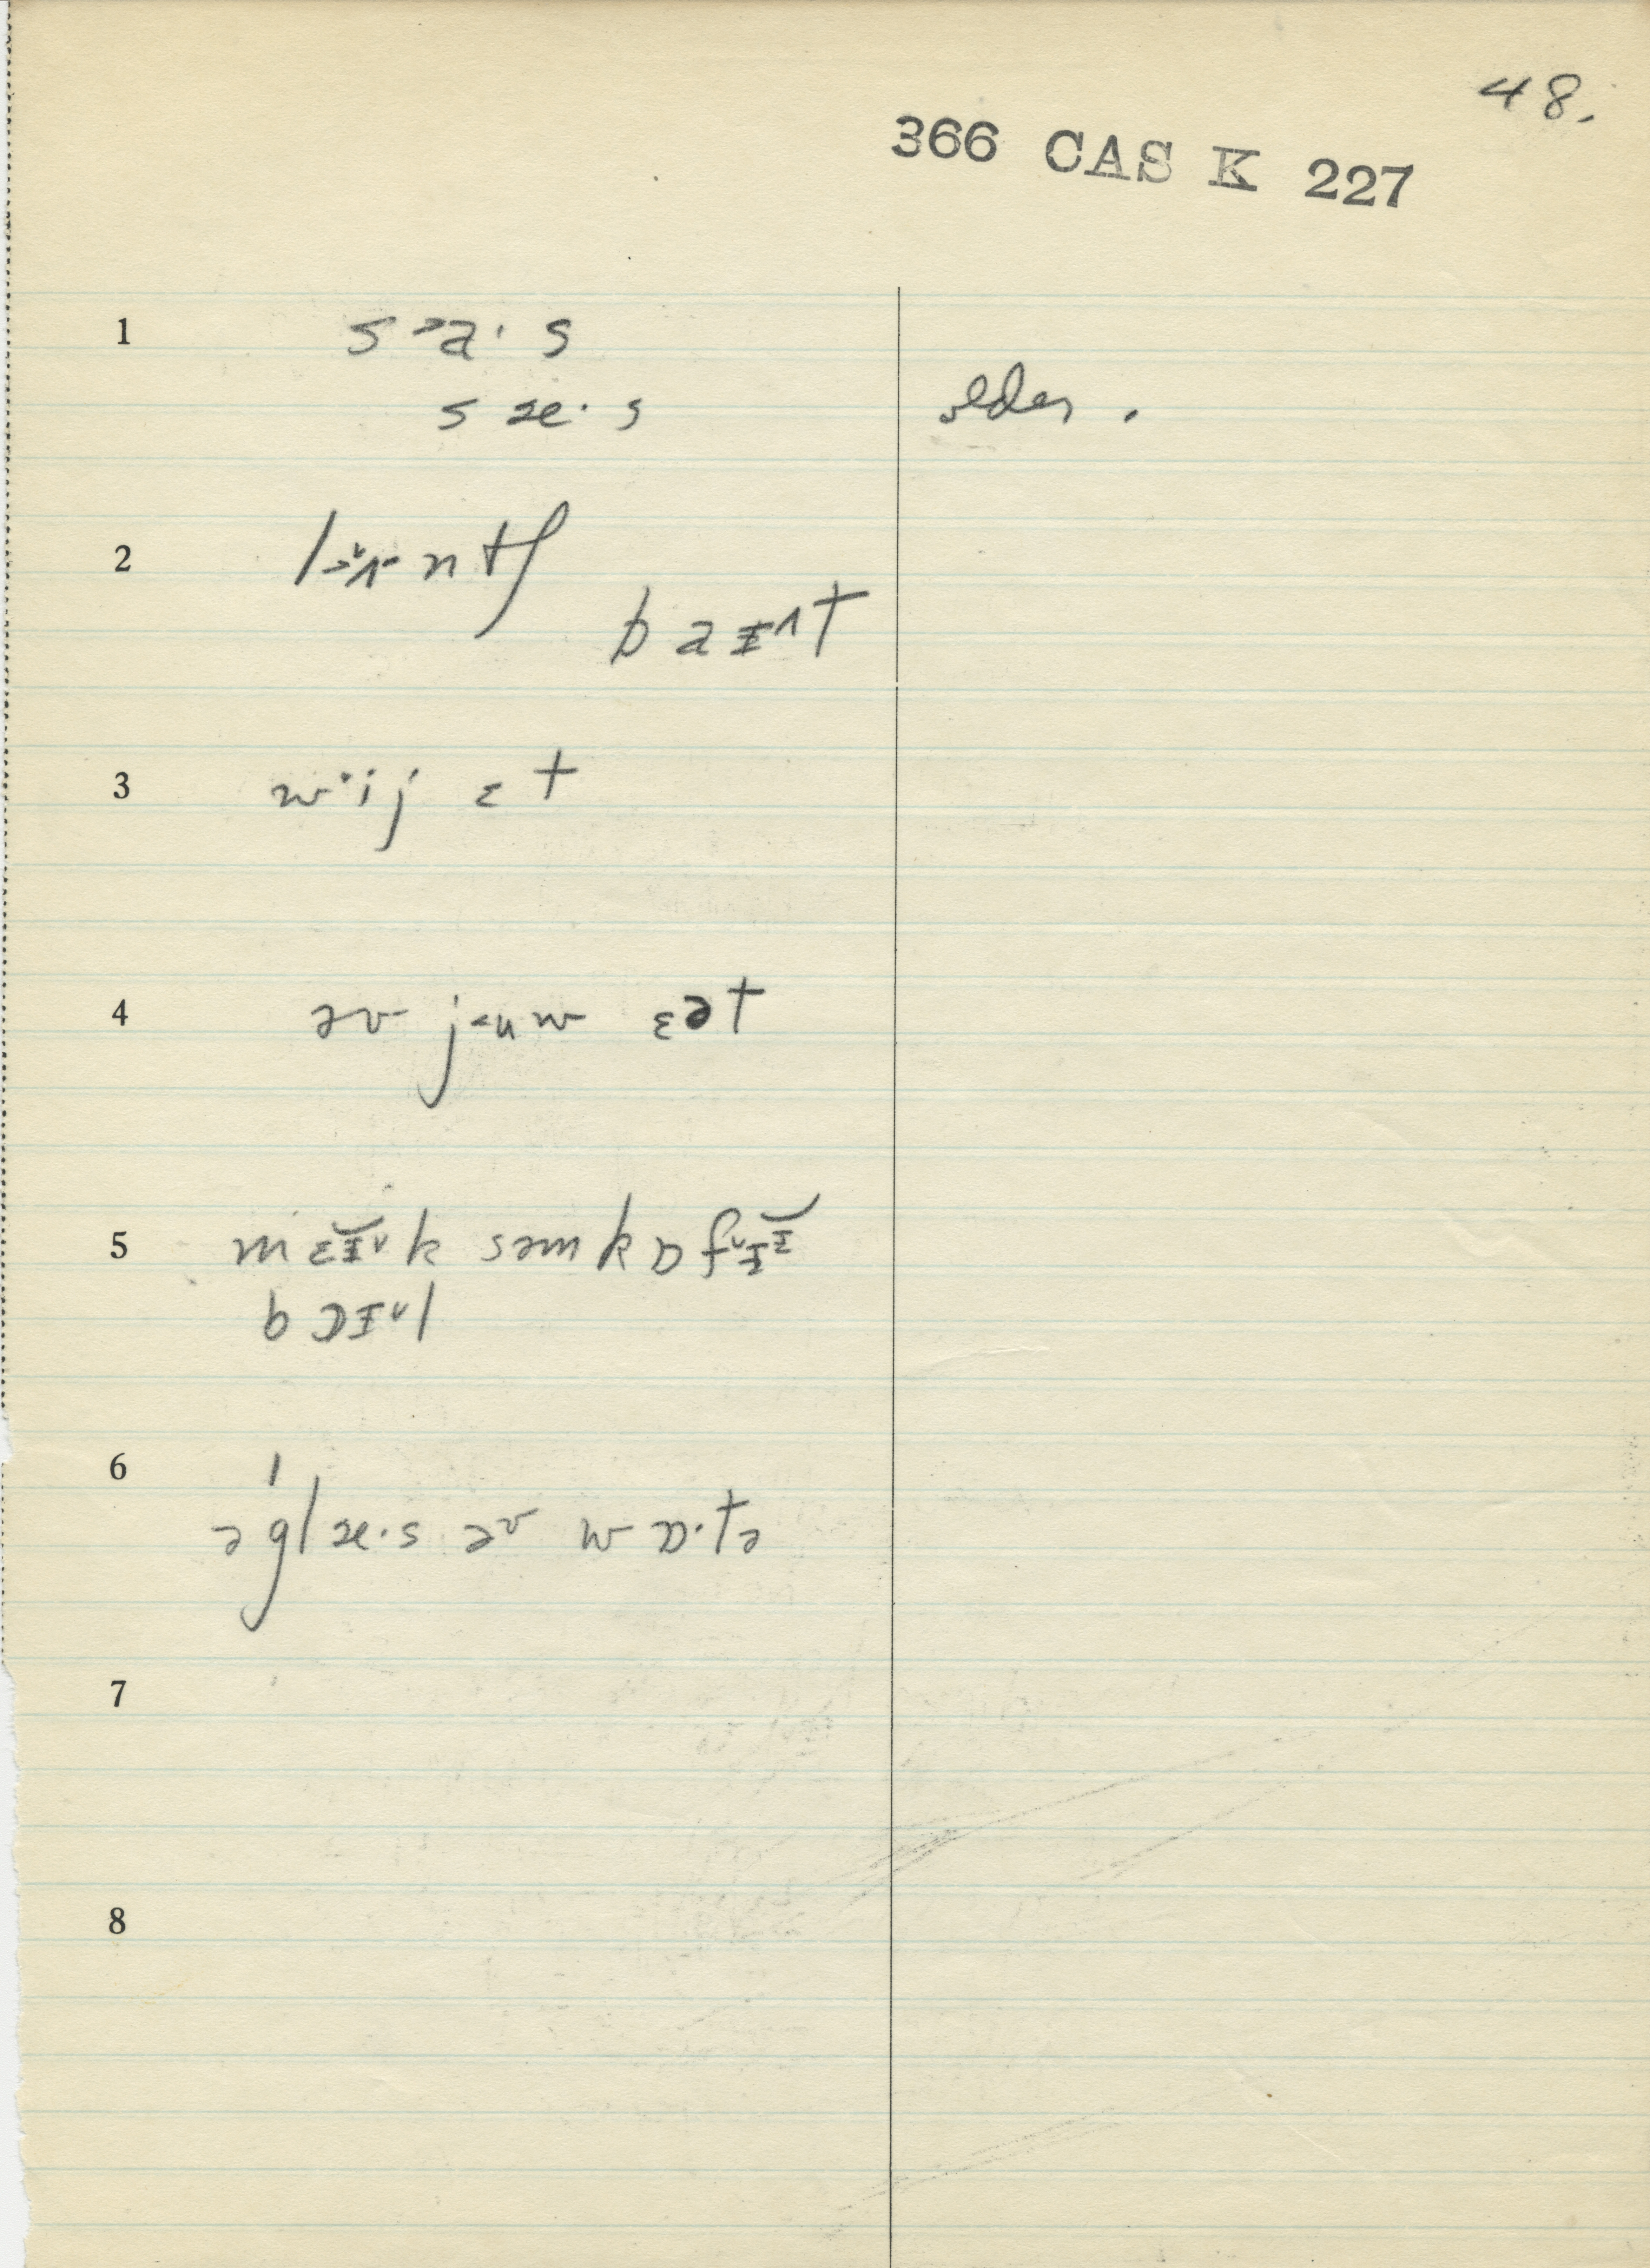 48.
366 CAS K 227
1 s ᵊa· s
s æ· s older .
2 l n tʃ
b a ɪ^ t
3 w·ij ɛ t
4 əv j u w ɛət
5 m ɛɪ̆˅k səm k ɒ f
b ɒɪ˅l
6 ə ˈgl æ·s əv w ɒ·tə
7
8